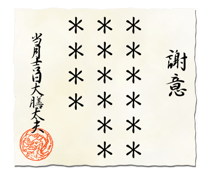 謝意
＊＊＊＊＊＊
＊＊＊＊＊＊
＊＊＊＊
当月吉日大膳太夫